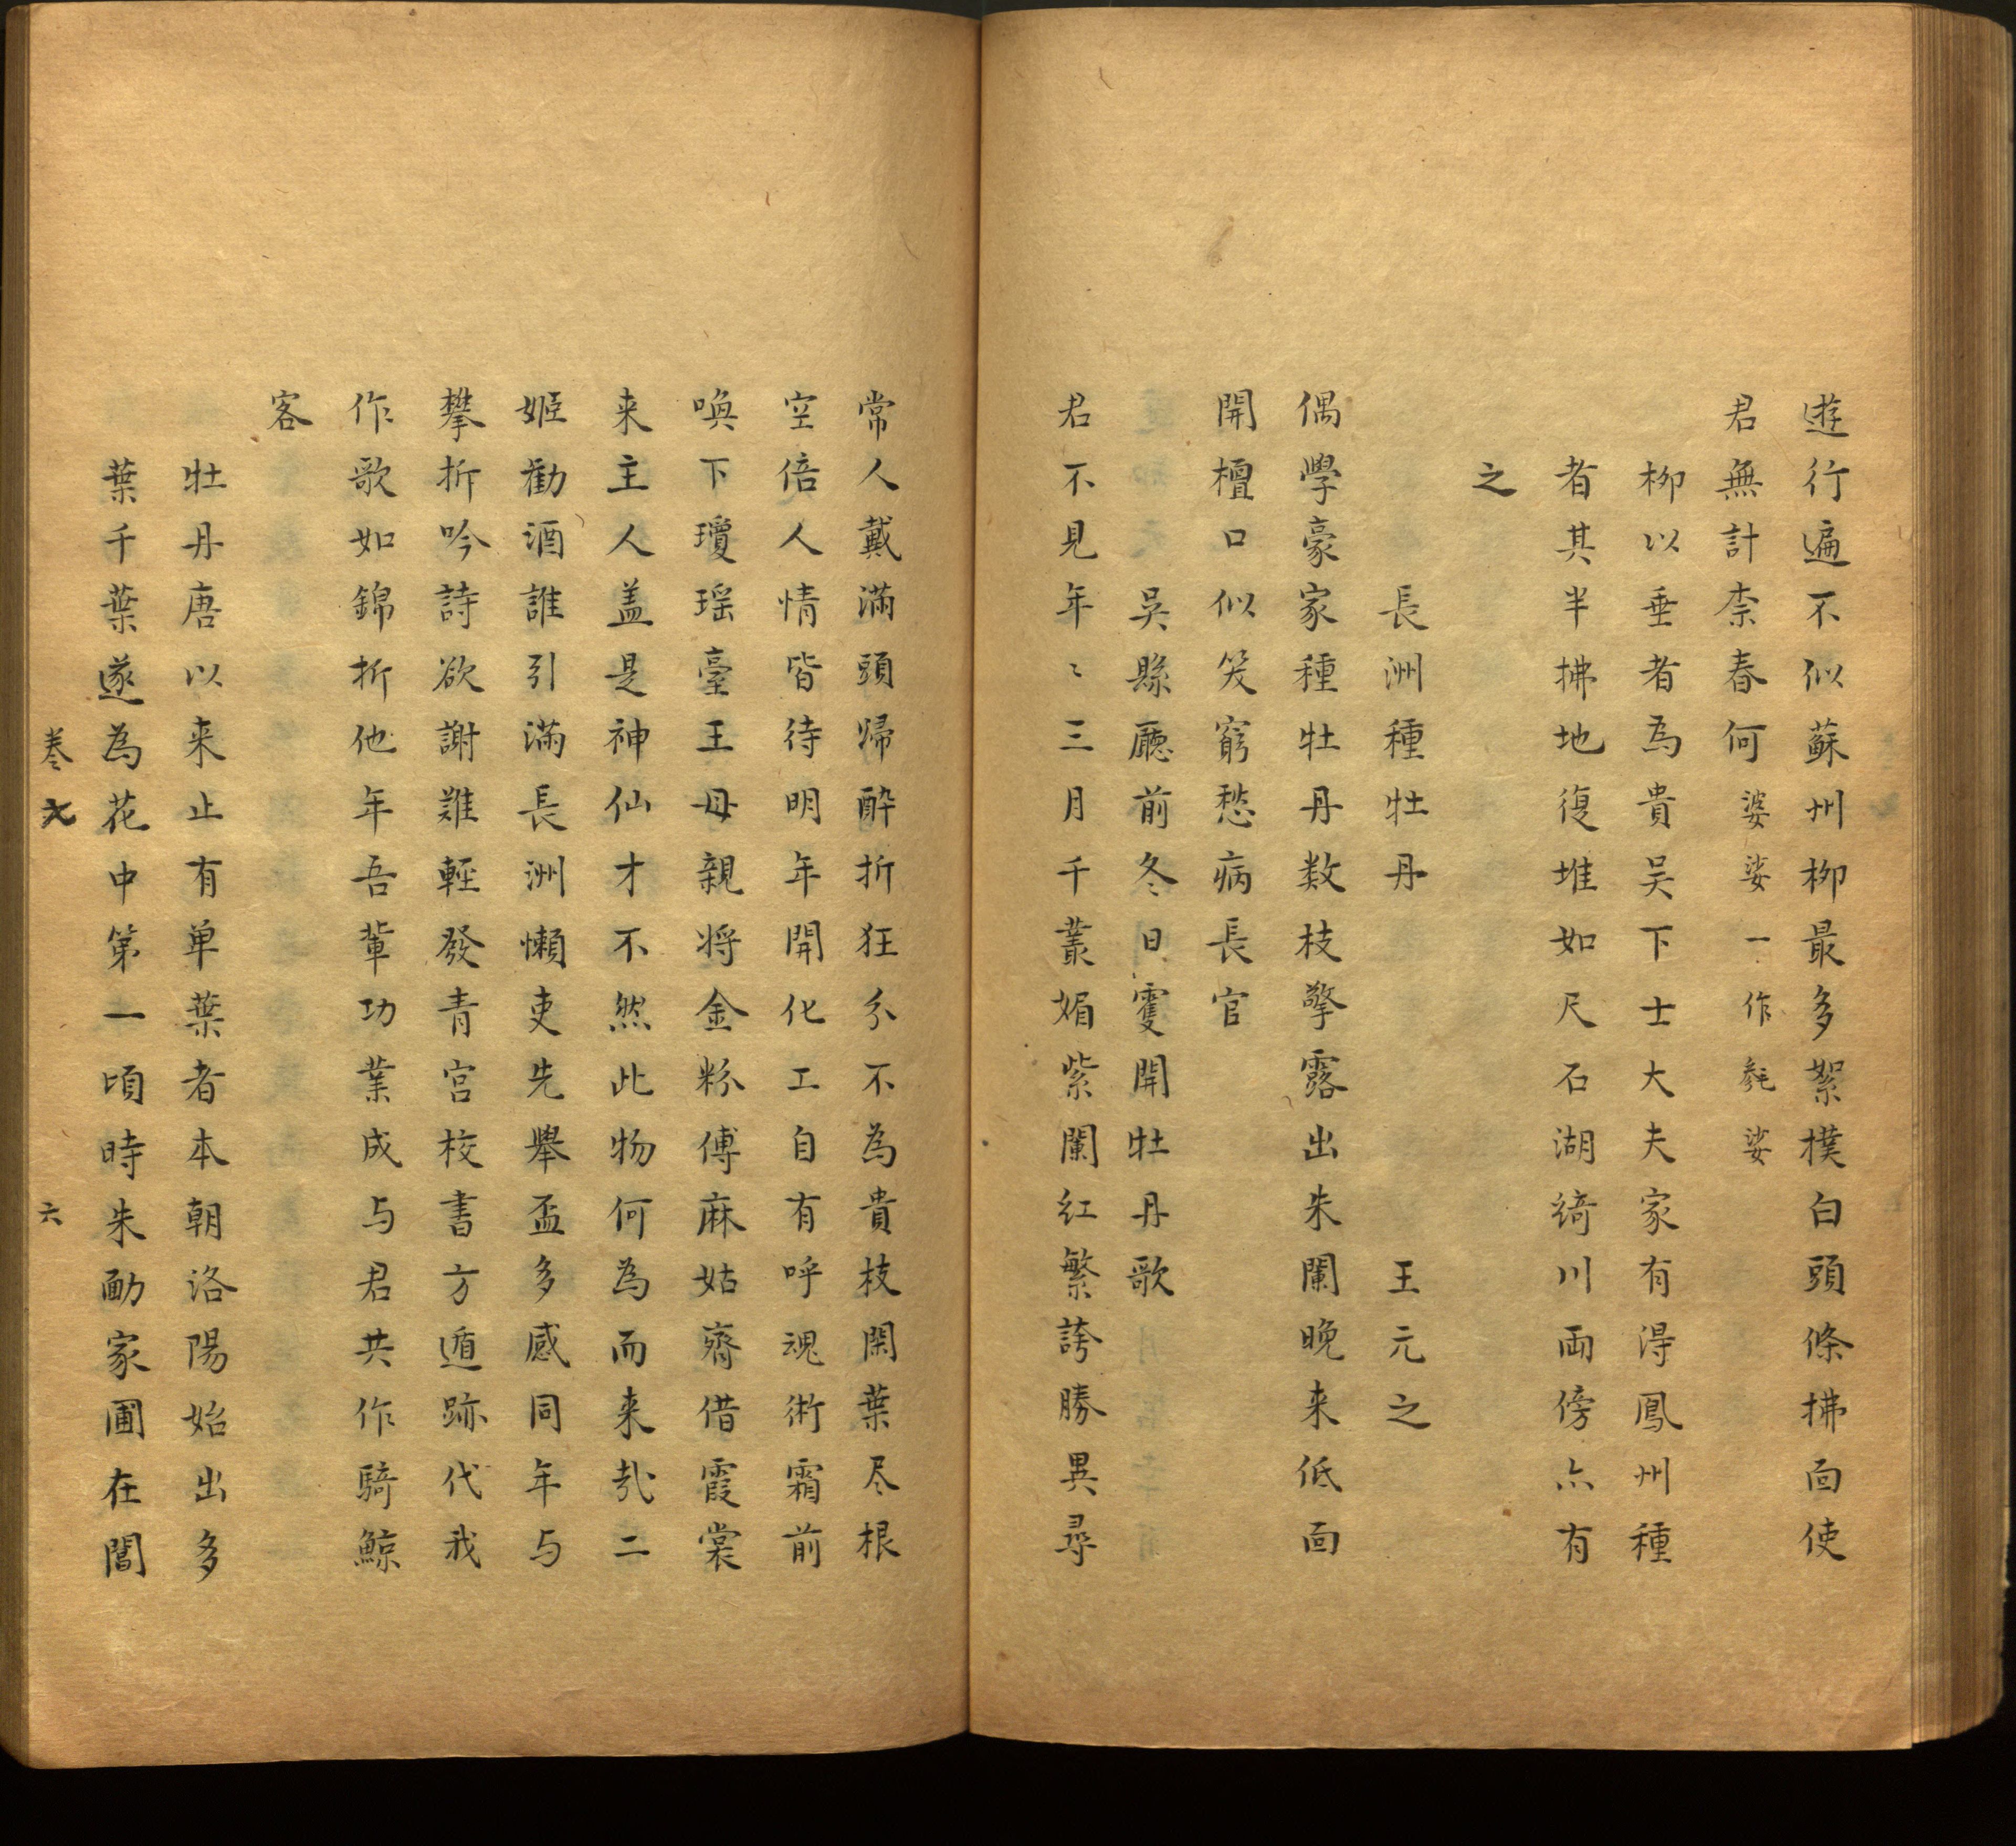 遊行遍不似蘇州柳最多絮撲白頭條拂面使
君無計柰春何婆娑一作毿娑
柳以垂者為貴吴下士大夫家有得鳳州種
者其半拂地復堆如尺石湖綺川両傍亦有
之
長洲種牡丹 王元之
偶學豪家種牡丹数枝擎露出朱闌晚来低面
開檀口似笑窮愁病長官
吳縣廳前冬日雙開牡丹歌
君不見年〻三月千叢媚紫闌紅繁誇勝異尋
常人戴滿頭歸醉折狂分不為貴枝閑葉尽根
空倍人情皆待明年開化工自有呼魂術霜前
喚下瓊瑶臺王母親将金粉傅麻姑齊借霞裳
来主人盖是神仙才不然此物何為而来㢤二
姬勸酒誰引滿長洲懶吏先舉盃多感同年与
攀折吟詩欲謝難輕發青宮校書方遁跡代我
作歌如錦折他年吾輩功業成与君共作騎鯨
客
牡丹唐以来止有单葉者本朝洛陽始出多
葉千葉遂為花中第一頃時朱勔家圃在閶
卷 六